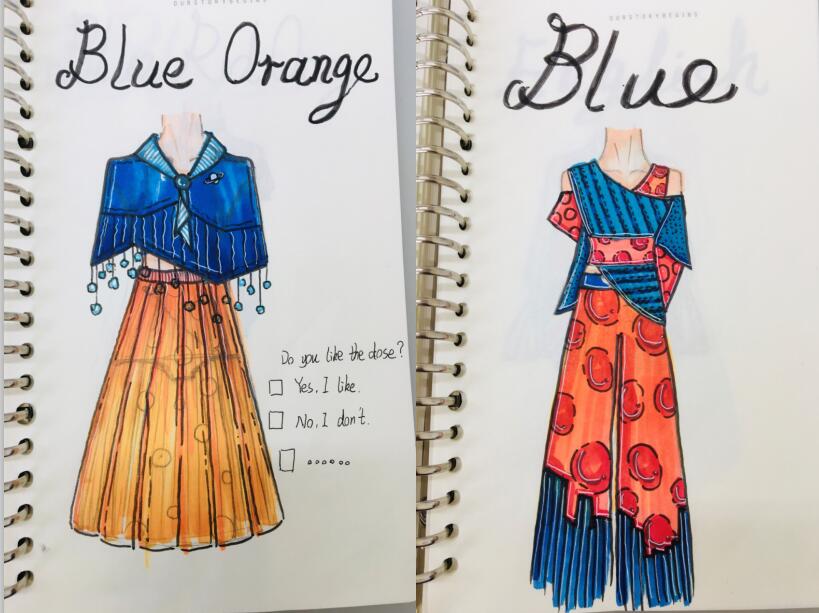 OURSTORYBEGINS
Blue Orange
Do you like the dose?
Yes, I like.
No, I don't.
......
OURSTORYBEGINS
Blue